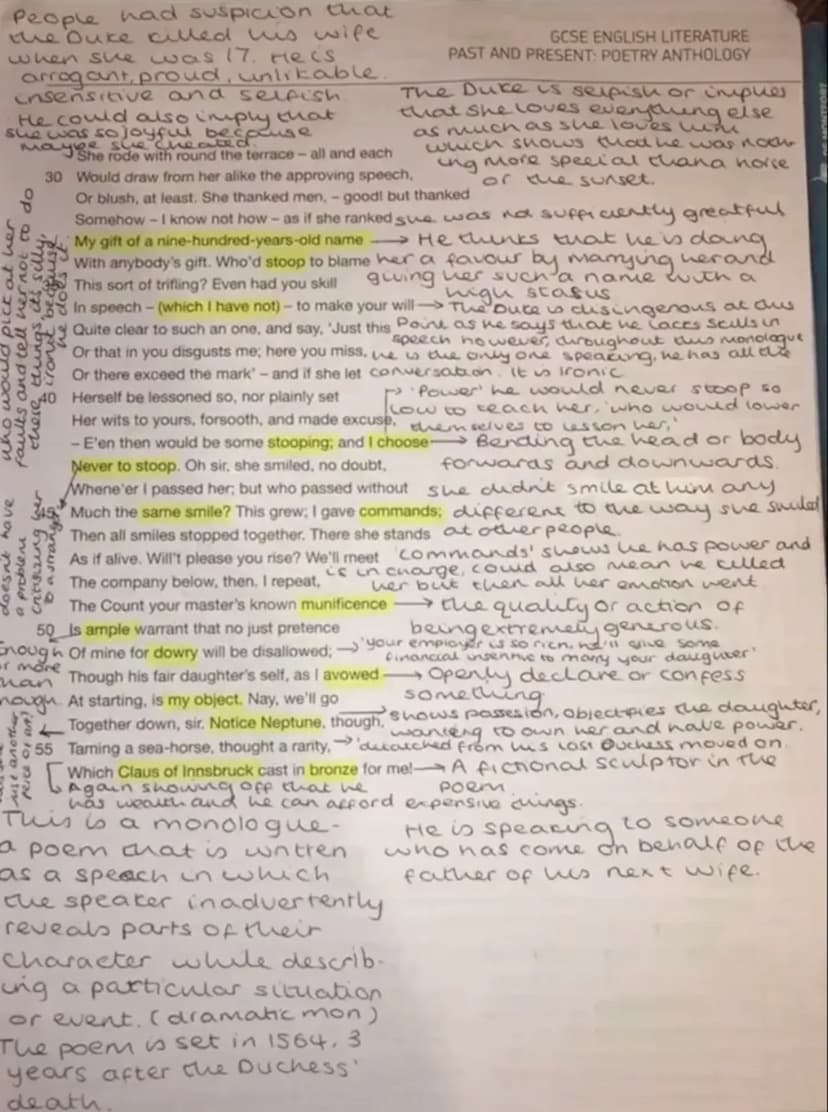 People had suspicion that
the Duke killed his wife
when she was 17. He is
arrogant, proud, unlikable.
insensitive and selfish
He could also imply that
she was so joyful because
maybe she cheated.
GCSE ENGLISH LITERATURE
PAST AND PRESENT: POETRY ANTHOLOGY
The Duke is selfish or implies
that she loves everything else
as much as she loves him
which shows that he was noth-
ing more special than a horse
or the sunset.
She rode with round the terrace – all and each
30 Would draw from her alike the approving speech,
Or blush, at least. She thanked men, – good! but thanked
Somehow – I know not how – as if she ranked
she was not sufficiently greatful
My gift of a nine-hundred-years-old name
He thinks that he is doing
With anybody's gift. Who'd stoop to blame
her a favour by marrying her and
This sort of trifling? Even had you skill
giving her such a name with a
high status
In speech – (which I have not) – to make your will
The Duke is disingenous at this
Quite clear to such an one, and say, 'Just this
Point as he says that he lacks skills in
speech however, throughout this monologue
Or that in you disgusts me; here you miss,
he is the only one speaking, he has all the
Or there exceed the mark' – and if she let
conversation. It is ironic
40 Herself be lessoned so, nor plainly set
'Power' he would never stoop so
low to teach her, 'who would lower
Her wits to yours, forsooth, and made excuse,
themselves to lesson her,'
– E'en then would be some stooping; and I choose
Bending the head or body
Never to stoop. Oh sir, she smiled, no doubt,
forwards and downwards.
Whene'er I passed her; but who passed without
she didn't smile at him any
45 Much the same smile? This grew; I gave commands;
different to the way she smiled
Then all smiles stopped together. There she stands
at other people.
As if alive. Will't please you rise? We'll meet
'commands' shows he has power and
is in charge, could also mean he killed
The company below, then. I repeat,
her but then all her emotion went
The Count your master's known munificence
the quality or action of
50 Is ample warrant that no just pretence
being extremely generous.
Of mine for dowry will be disallowed;
'your employer is so rich, he'll give some
financial insentive to marry your daughter'
Though his fair daughter's self, as I avowed
Openly declare or confess
something
At starting, is my object. Nay, we'll go
shows possesion, objectifies the daughter,
Together down, sir. Notice Neptune, though,
wanting to own her and have power.
55 Taming a sea-horse, thought a rarity,
'detatched from his last Duchess moved on
Which Claus of Innsbruck cast in bronze for me!
A fictional sculptor in the
poem.
Again showing off that he
has wealth and he can afford expensive things.
who would pick at her
faults and tell her not to do
these things it's silly,
ironic because
he does it.
doesn't have
a problem
critisizing her
to a stranger
Enough
or more
than
nough
This is a monologue -
a poem that is written
as a speech in which
the speaker inadvertently
reveals parts of their
character while describ-
ing a particular situation
or event. (dramatic mon)
The poem is set in 1564, 3
years after the Duchess'
death.
He is speaking to someone
who has come on behalf of the
father of his next wife.